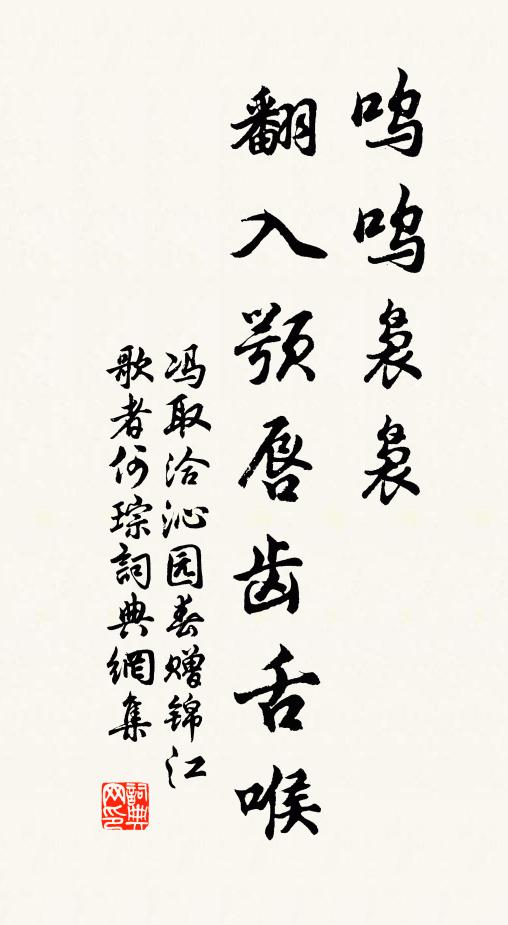 呜呜袅袅
翻入颚唇齿舌喉
冯取洽沁园春赠锦江
歌者何琮詞典網集
詞典
网印